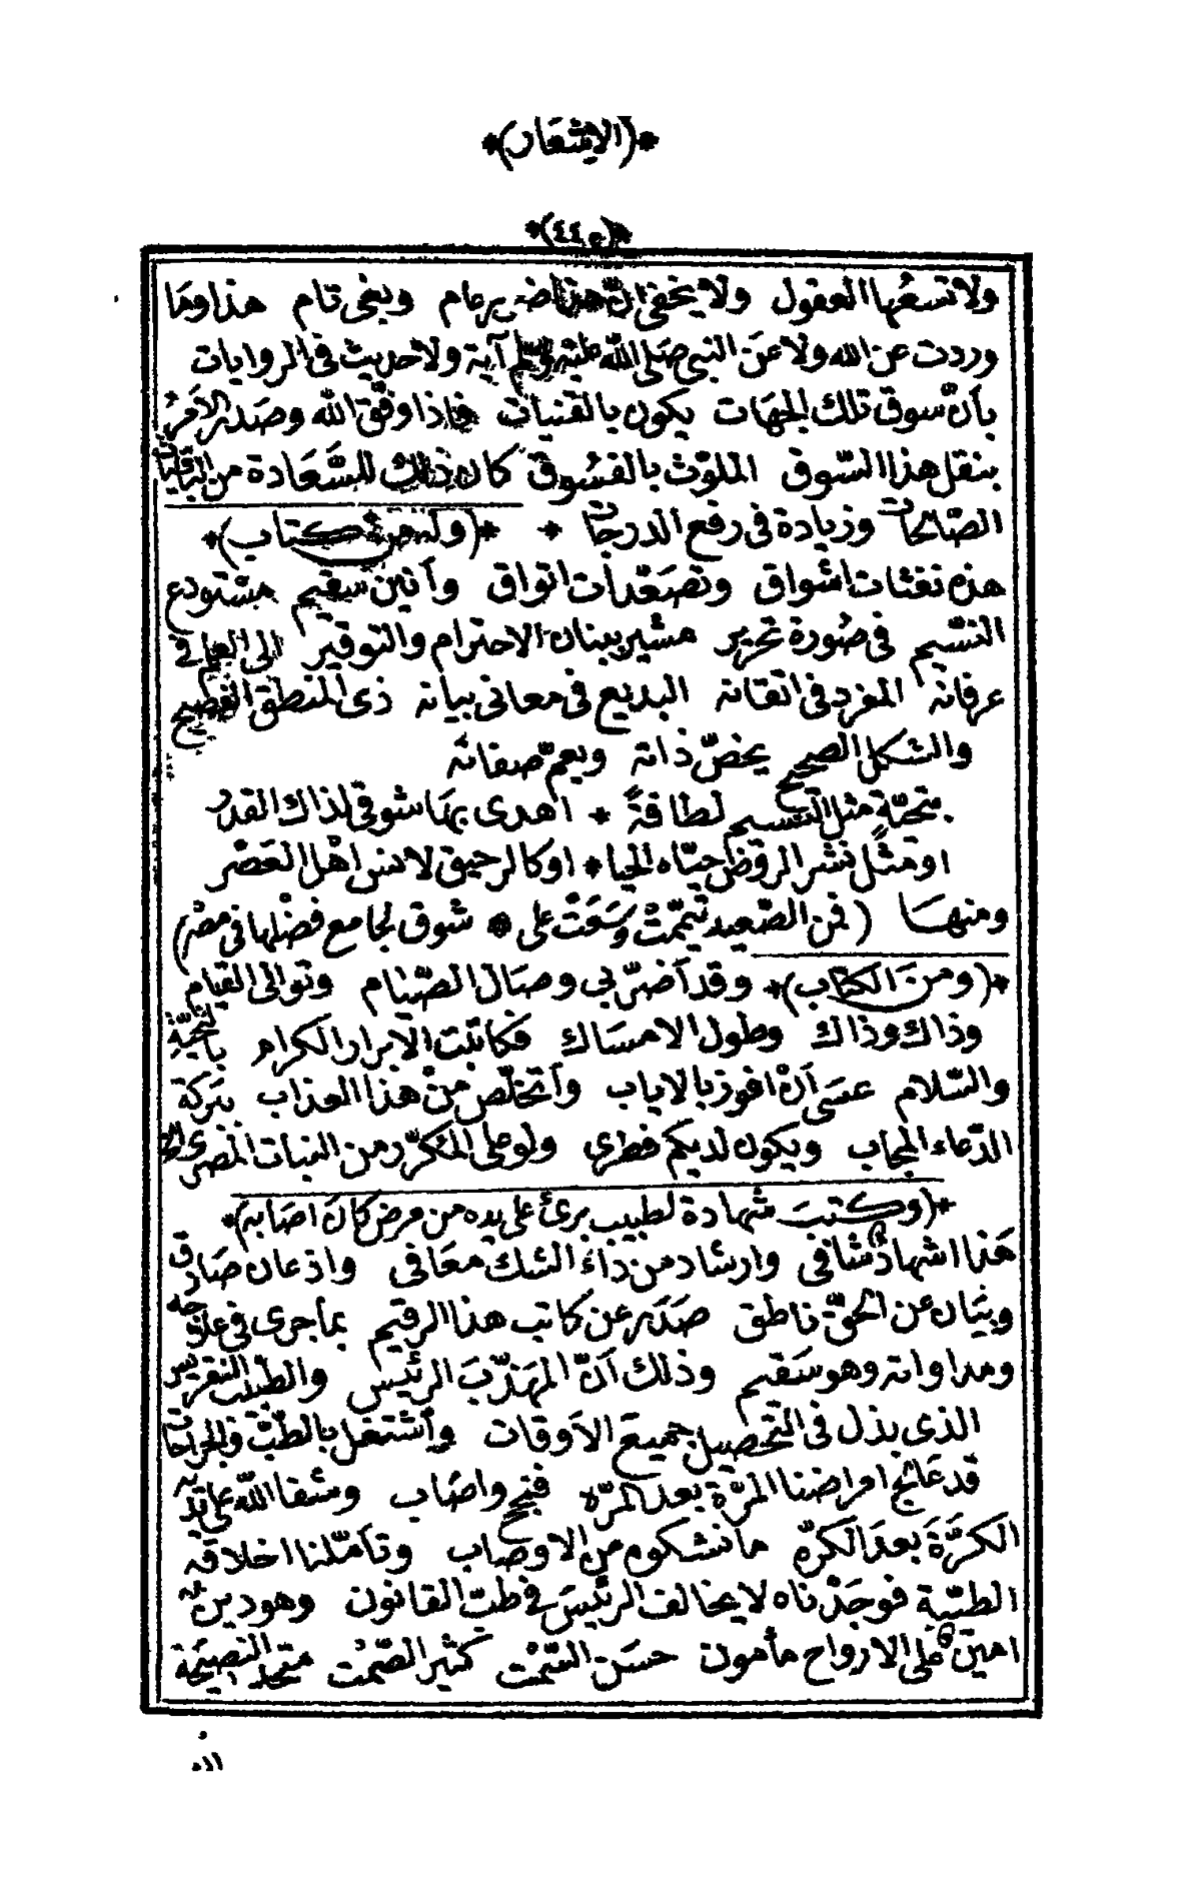 *(الاشعار)*
*(٤٤٥)*
ولا تسعها العقول ولا يخفى ان هذا ضرر عام وبغى تام هذا وما
وردت عن الله ولا عن النبي صلى الله عليه وسلم آية ولا حديث في الروايات
بأن سوق تلك الجهات يكون بالقنيات فاذا وفق الله وصدر الأمر
بنقل هذا السوق الملوث بالفسوق كان ذلك للسعادة من الباقيات
الصالحات وزيادة في رفع الدرجات * *(وله من كتاب)*
هذه نفثات اشواق وتصعدات اتواق وأنين سقيم مستودع
النسيم في صورة تحرير مشير ببنان الاحترام والتوقير الى العالم في
عرفانه المفرد في اتقانه البديع في معاني بيانه ذي المنطق الفصيح
والشكل الصحيح يخص ذاته ويعم صفاته
بتحية مثل النسيم لطافة * اهدى بها شوقي لذاك القدر
او مثل نشر الروض حياه الحيا * او كالرحيق لانس اهل العصر
ومنها (فمن الصعيد تيممت وسعت على * شوق لجامع فضلها في مصر)
*(ومن الكتاب)* وقد أضر بي وصال الصيام وتوالي القيام
وذاك وذاك وطول الامساك فكاتبت الأبرار الكرام بالتحية
والسلام عسى أن افوز بالاياب وأتخلص من هذا العذاب ببركة
الدعاء المجاب ويكون لديكم فطري ولو على المكرر من النبات المصري الخ
*(وكتبت شهادة لطبيب برئ على يده من مرض كان اصابه)*
هذا اشهاد شافي وارشاد من داء الشك معافى واذعان صادق
وبيان عن الحق ناطق صدر عن كاتب هذا الرقيم بما جرى في علاجه
ومداواته وهو سقيم وذلك أن المهذب الرئيس والطبيب النقريس
الذي بذل في التحصيل جميع الأوقات وأشتغل بالطب والجراحات
قد عالج امراضنا المرة بعد المره فنجح واصاب وشفا الله على يديه
الكرة بعد الكره ما نشكوه من الاوصاب وتأملنا اخلاقه
الطبية فوجدناه لا يخالف الرئيس في طب القانون وهو دين
امين على الارواح مأمون حسن السمت كثير الصمت متحد النصيحة